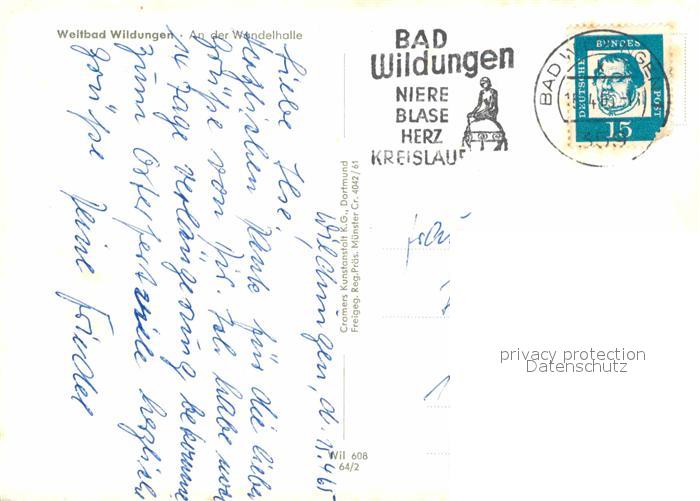 Weltbad Wildungen · An der Wandelhalle
Wildungen, d. 15.4.65
Liebe Ilse,
Herzlichen Dank für die lieben
Grüße von Dir. Ich habe noch
14 Tage Verlängerung bekommen
zum Osterfest viele herzliche
Grüße Deine Frieder
Cramers Kunstanstalt K.G., Dortmund
Freigeg. Reg.Präs. Münster Cr. 4042/61
Wil 608
64/2
BAD
Wildungen
NIERE
BLASE
HERZ
KREISLAUF
BAD W
DEUTSCHE BUNDES POST
15
privacy protection
Datenschutz